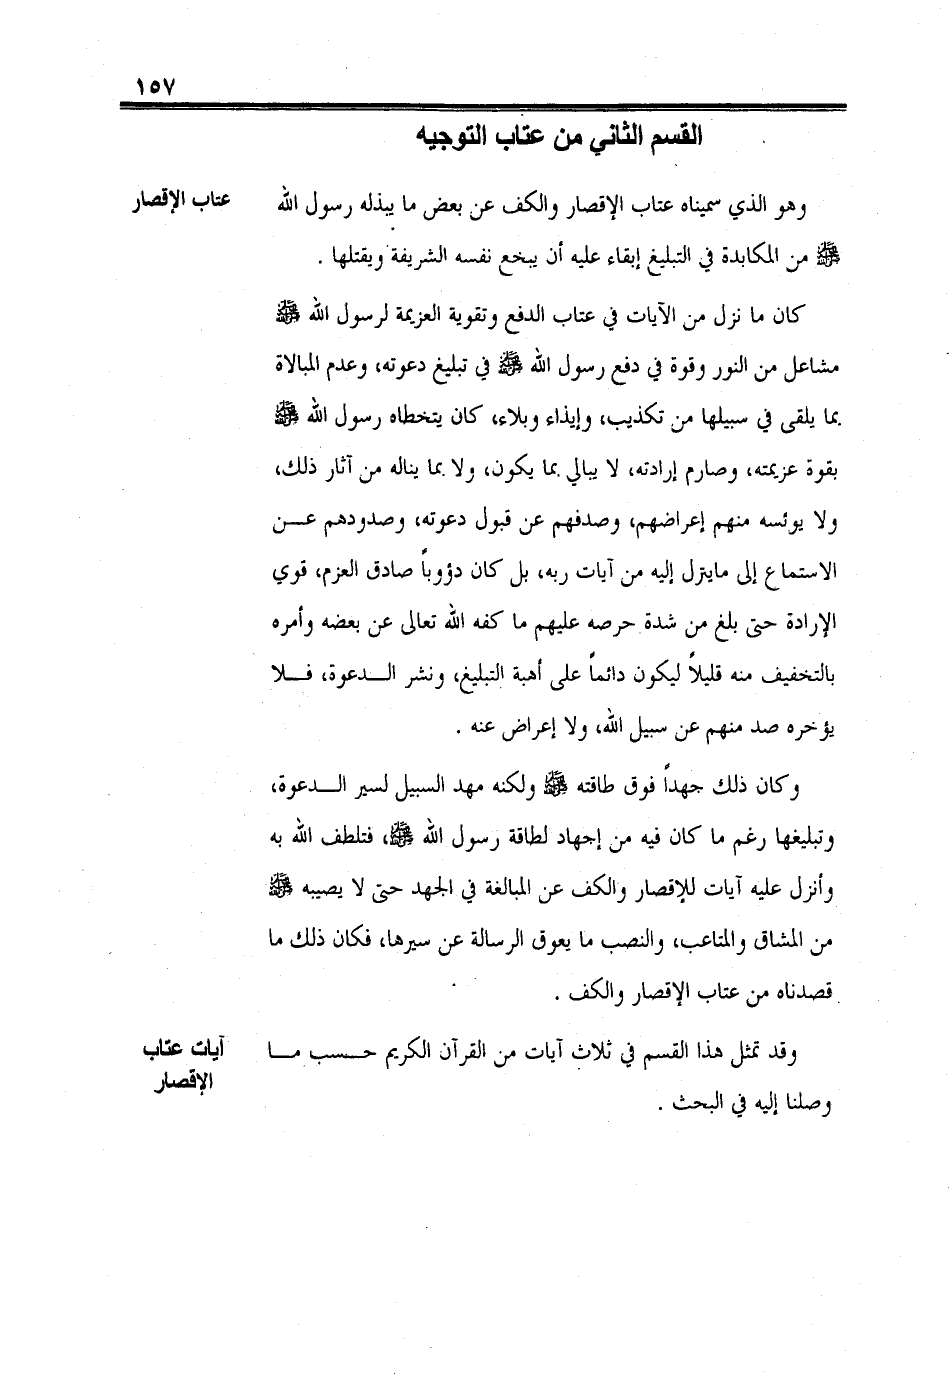 ١٥٧
القسم الثاني من عتاب التوجيه
عتاب الإقصار
وهو الذي سميناه عتاب الإقصار والكف عن بعض ما يبذله رسول الله
ﷺ من المكابدة في التبليغ إبقاء عليه أن يبخع نفسه الشريفة ويقتلها .
كان ما نزل من الآيات في عتاب الدفع وتقوية العزيمة لرسول الله ﷺ
مشاعل من النور وقوة في دفع رسول الله ﷺ في تبليغ دعوته، وعدم المبالاة
بما يلقى في سبيلها من تكذيب، وإيذاء وبلاء، كان يتخطاه رسول الله ﷺ
بقوة عزيمته، وصارم إرادته، لا يبالي بما يكون، ولا بما يناله من آثار ذلك،
ولا يوئسه منهم إعراضهم، وصدفهم عن قبول دعوته، وصدودهم عـــن
الاستماع إلى ماينزل إليه من آيات ربه، بل كان دؤوباً صادق العزم، قوي
الإرادة حتى بلغ من شدة حرصه عليهم ما كفه الله تعالى عن بعضه وأمره
بالتخفيف منه قليلاً ليكون دائماً على أهبة التبليغ، ونشر الـــدعوة، فـــلا
يؤخره صد منهم عن سبيل الله، ولا إعراض عنه .
وكان ذلك جهداً فوق طاقته ﷺ ولكنه مهد السبيل لسير الـــدعوة،
وتبليغها رغم ما كان فيه من إجهاد لطاقة رسول الله ﷺ، فتلطف الله به
وأنزل عليه آيات للإقصار والكف عن المبالغة في الجهد حتى لا يصيبه ﷺ
من المشاق والمتاعب، والنصب ما يعوق الرسالة عن سيرها، فكان ذلك ما
قصدناه من عتاب الإقصار والكف .
آيات عتاب
الإقصار
وقد تمثل هذا القسم في ثلاث آيات من القرآن الكريم حـــسب مـــا
وصلنا إليه في البحث .